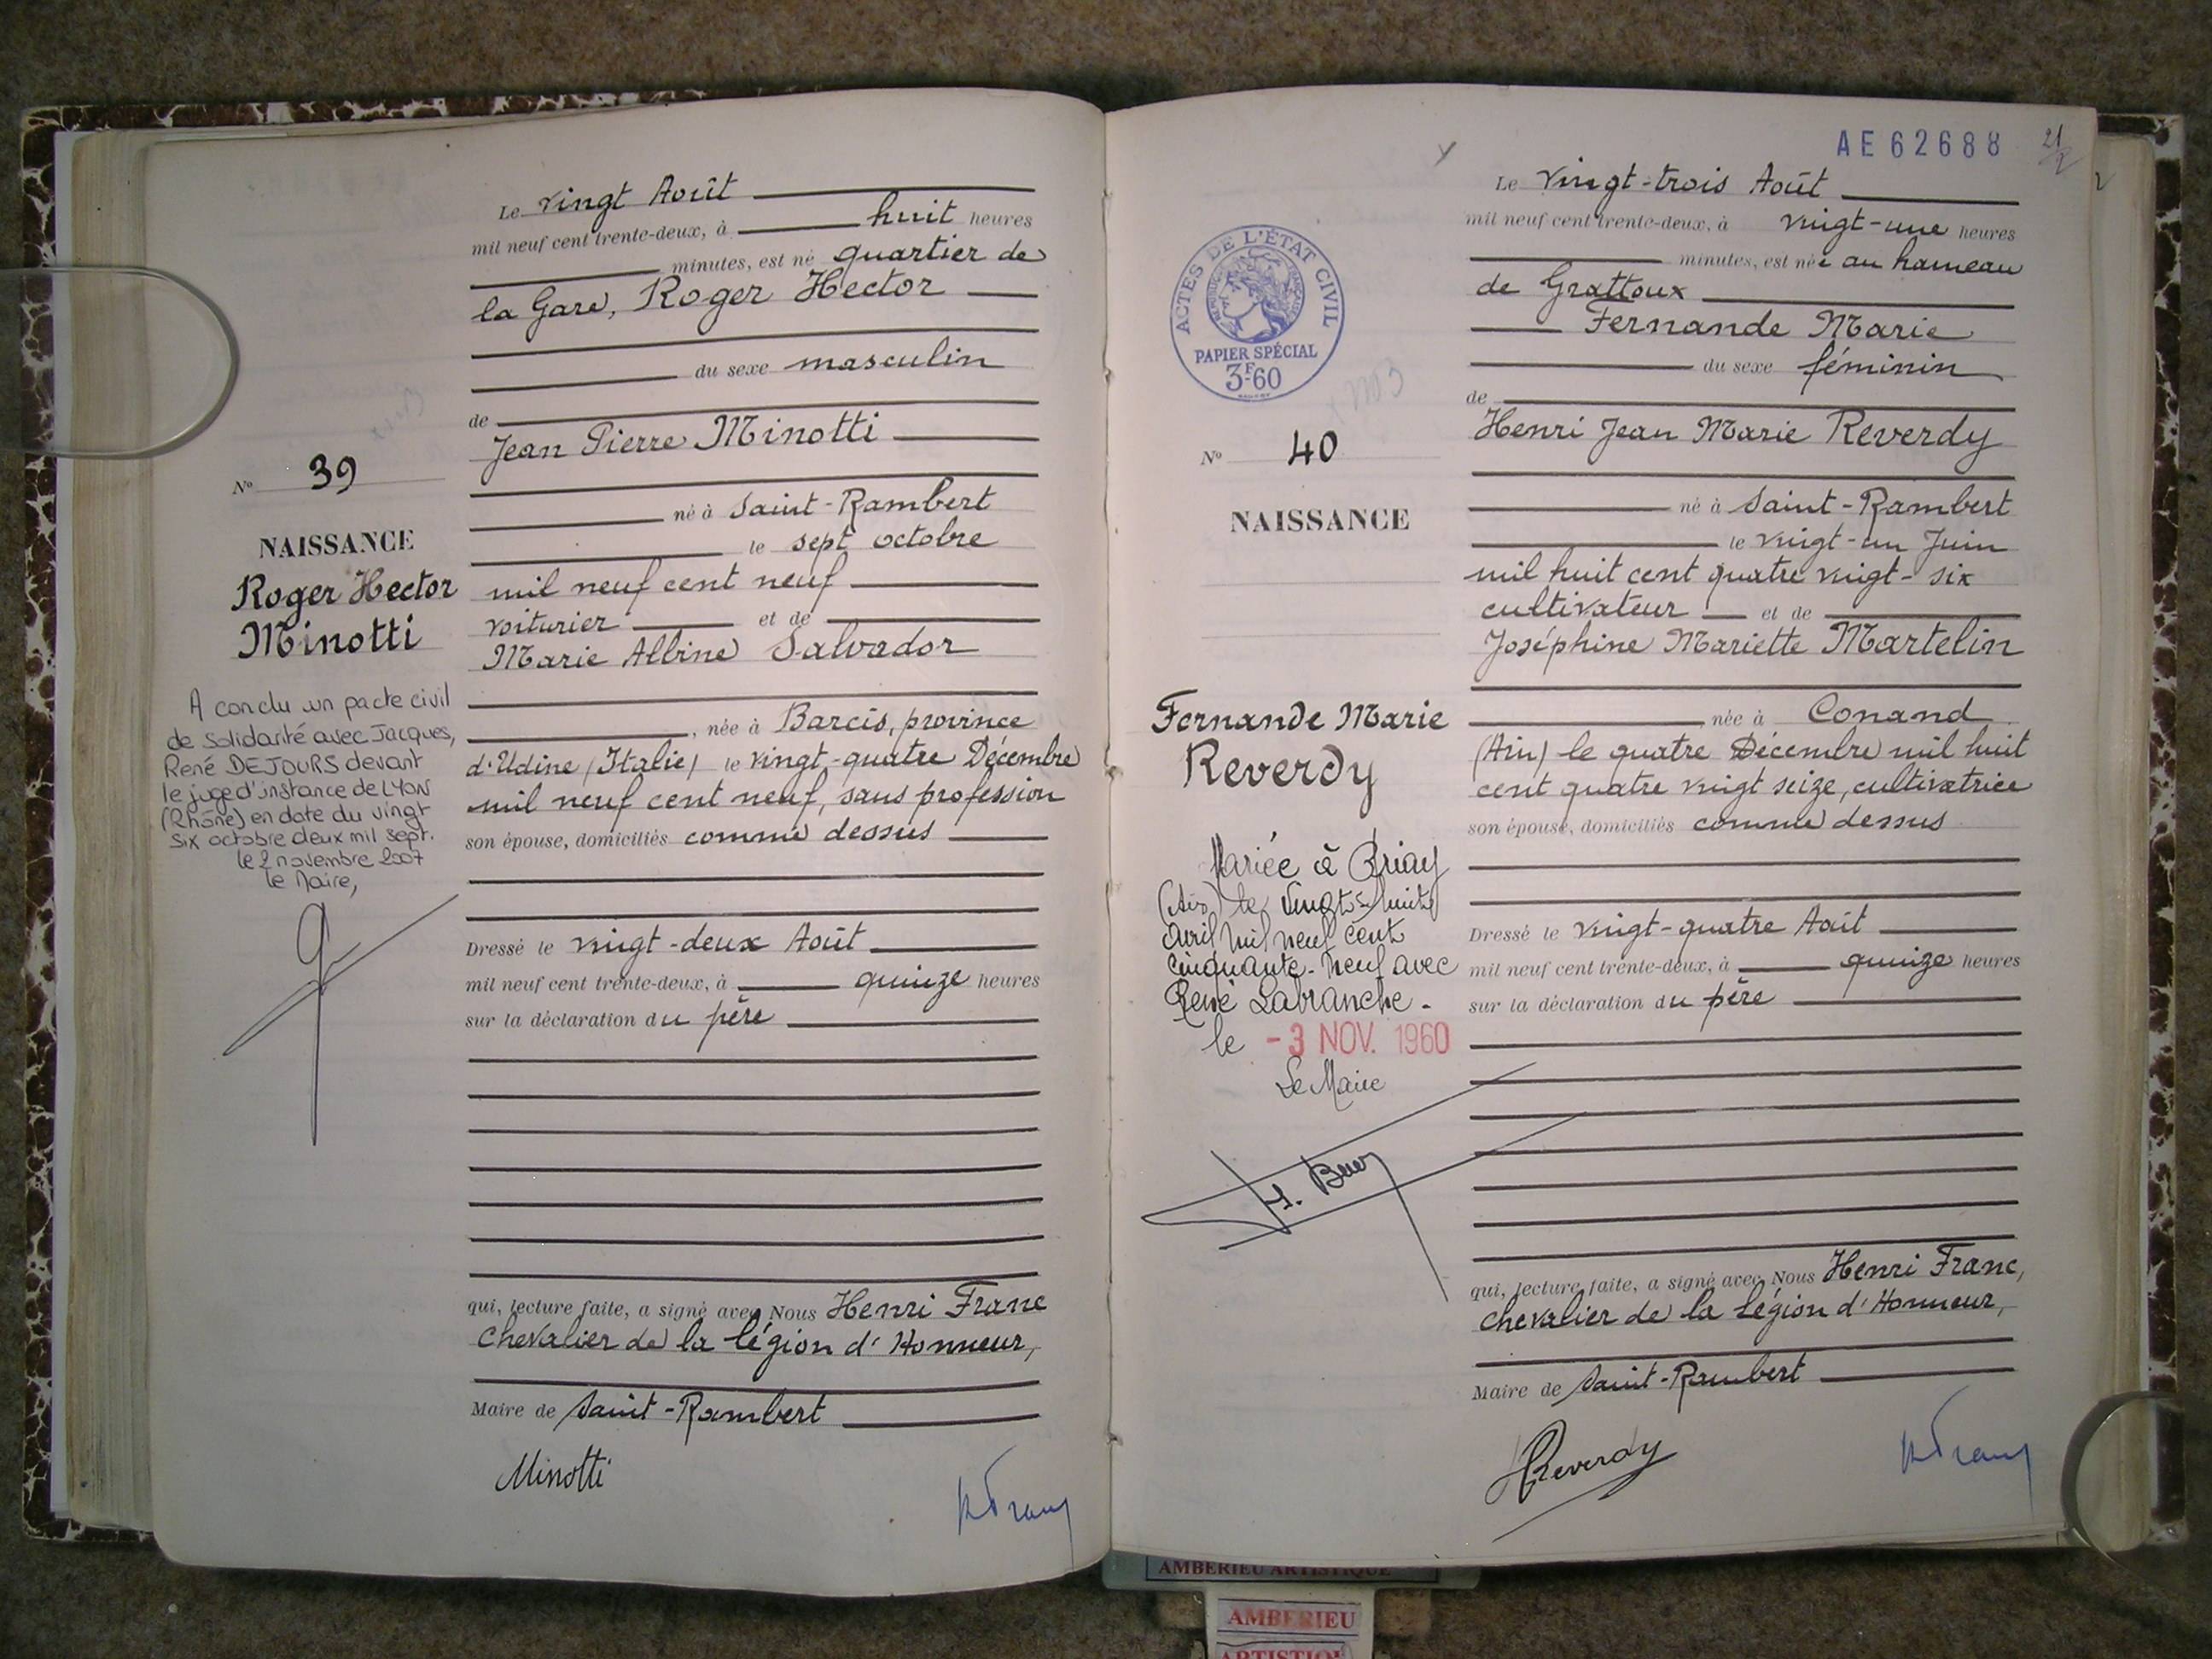 Le vingt Août
mil neuf cent trente-deux, à huit heures
minutes, est né quartier de
la Gare, Roger Hector
du sexe masculin
de
Jean Pierre Minotti
né à Saint-Rambert
le sept octobre
mil neuf cent neuf
voiturier et de
Marie Albine Salvador
, née à Barcis, province
d'Udine (Italie) le vingt-quatre Décembre
mil neuf cent neuf, sans profession
son épouse, domiciliés comme dessus
Dressé le vingt-deux Août
mil neuf cent trente-deux, à quinze heures
sur la déclaration du père
qui, lecture faite, a signé avec Nous Henri Franc
chevalier de la légion d'Honneur,
Maire de Saint-Rambert
Minotti
HFranc
N° 39
NAISSANCE
Roger Hector
Minotti
A conclu un pacte civil
de solidarité avec Jacques,
René DEJOURS devant
le juge d'instance de LYON
(Rhône) en date du vingt
six octobre deux mil sept.
le 2 novembre 2007
le Maire,
AE62688
21
Le vingt-trois Août
mil neuf cent trente-deux, à vingt-une heures
minutes, est née au hameau
de Grattoux
Fernande Marie
du sexe féminin
de
Henri Jean Marie Reverdy
né à Saint-Rambert
le vingt-un Juin
mil huit cent quatre vingt-six
cultivateur et de
Joséphine Mariette Martelin
née à Conand
(Ain) le quatre Décembre mil huit
cent quatre vingt seize, cultivatrice
son épouse, domiciliés comme dessus
Dressé le vingt-quatre Août
mil neuf cent trente-deux, à quinze heures
sur la déclaration du père
qui, lecture faite, a signé avec Nous Henri Franc,
chevalier de la Légion d'Honneur,
Maire de Saint-Rambert
HReverdy
HFranc
ACTES DE L'ÉTAT CIVIL
RÉPUBLIQUE FRANÇAISE
PAPIER SPÉCIAL
3F60
N° 40
NAISSANCE
Fernande Marie
Reverdy
Mariée à Priay
(Ain) le vingt-huit
avril mil neuf cent
cinquante-neuf avec
René Labranche-
le -3 NOV. 1960
Le Maire
AMBERIEU ARTISTIQUE
AMBERIEU
ARTISTIQUE